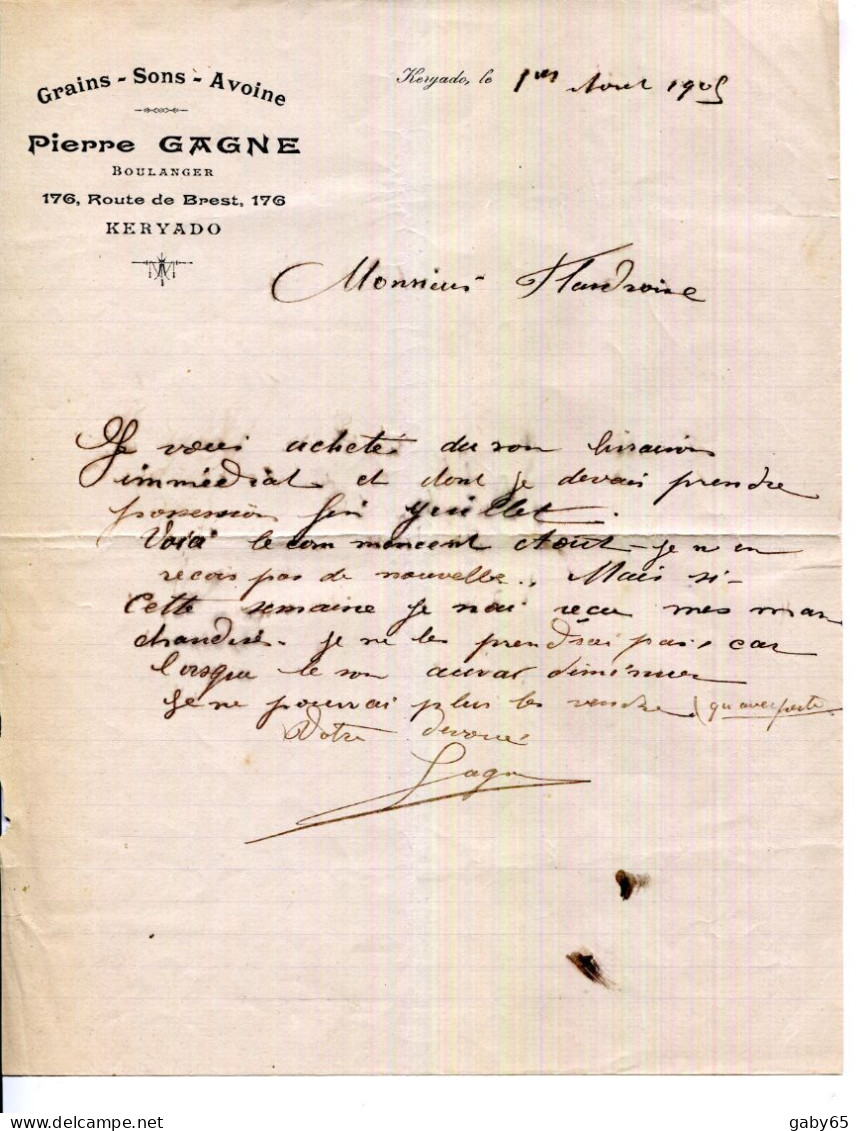 Grains - Sons - Avoine
Pierre GAGNE
BOULANGER
176, Route de Brest, 176
KERYADO
Keryado, le 1er Aout 1905
Monsieur
Je vous acheté du son livraison
immédiat et dont je devais prendre
possession fin juillet.
Voici le commencent Aout je n en
recois pas de nouvelle. Mais si
cette semaine je nai recu mes mar
chandise. je ne les prendrai pas, car
lorsque le son aurai diminuer
je ne pourrai plus les vendre (qu avec perte
Votre devoué
Gagne
gaby65